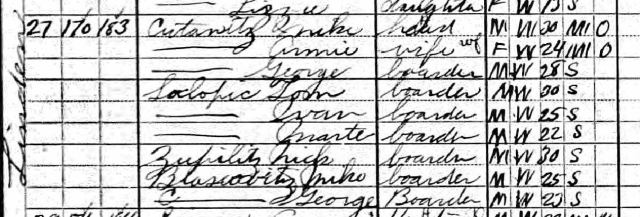 Lizzie daughter F W 13 S
Linden
27 170 183 Cutanitz Mike head M W 30 M 10
—— Annie wife F W 24 M 10
—— George boarder M W 28 S
Soclopic Tom boarder M W 30 S
—— Ivan boarder M W 25 S
—— Marte boarder M W 22 S
Zupilitz Nick boarder M W 30 S
Blascovitz Mike boarder M W 25 S
—— George Boarder M W 23 S